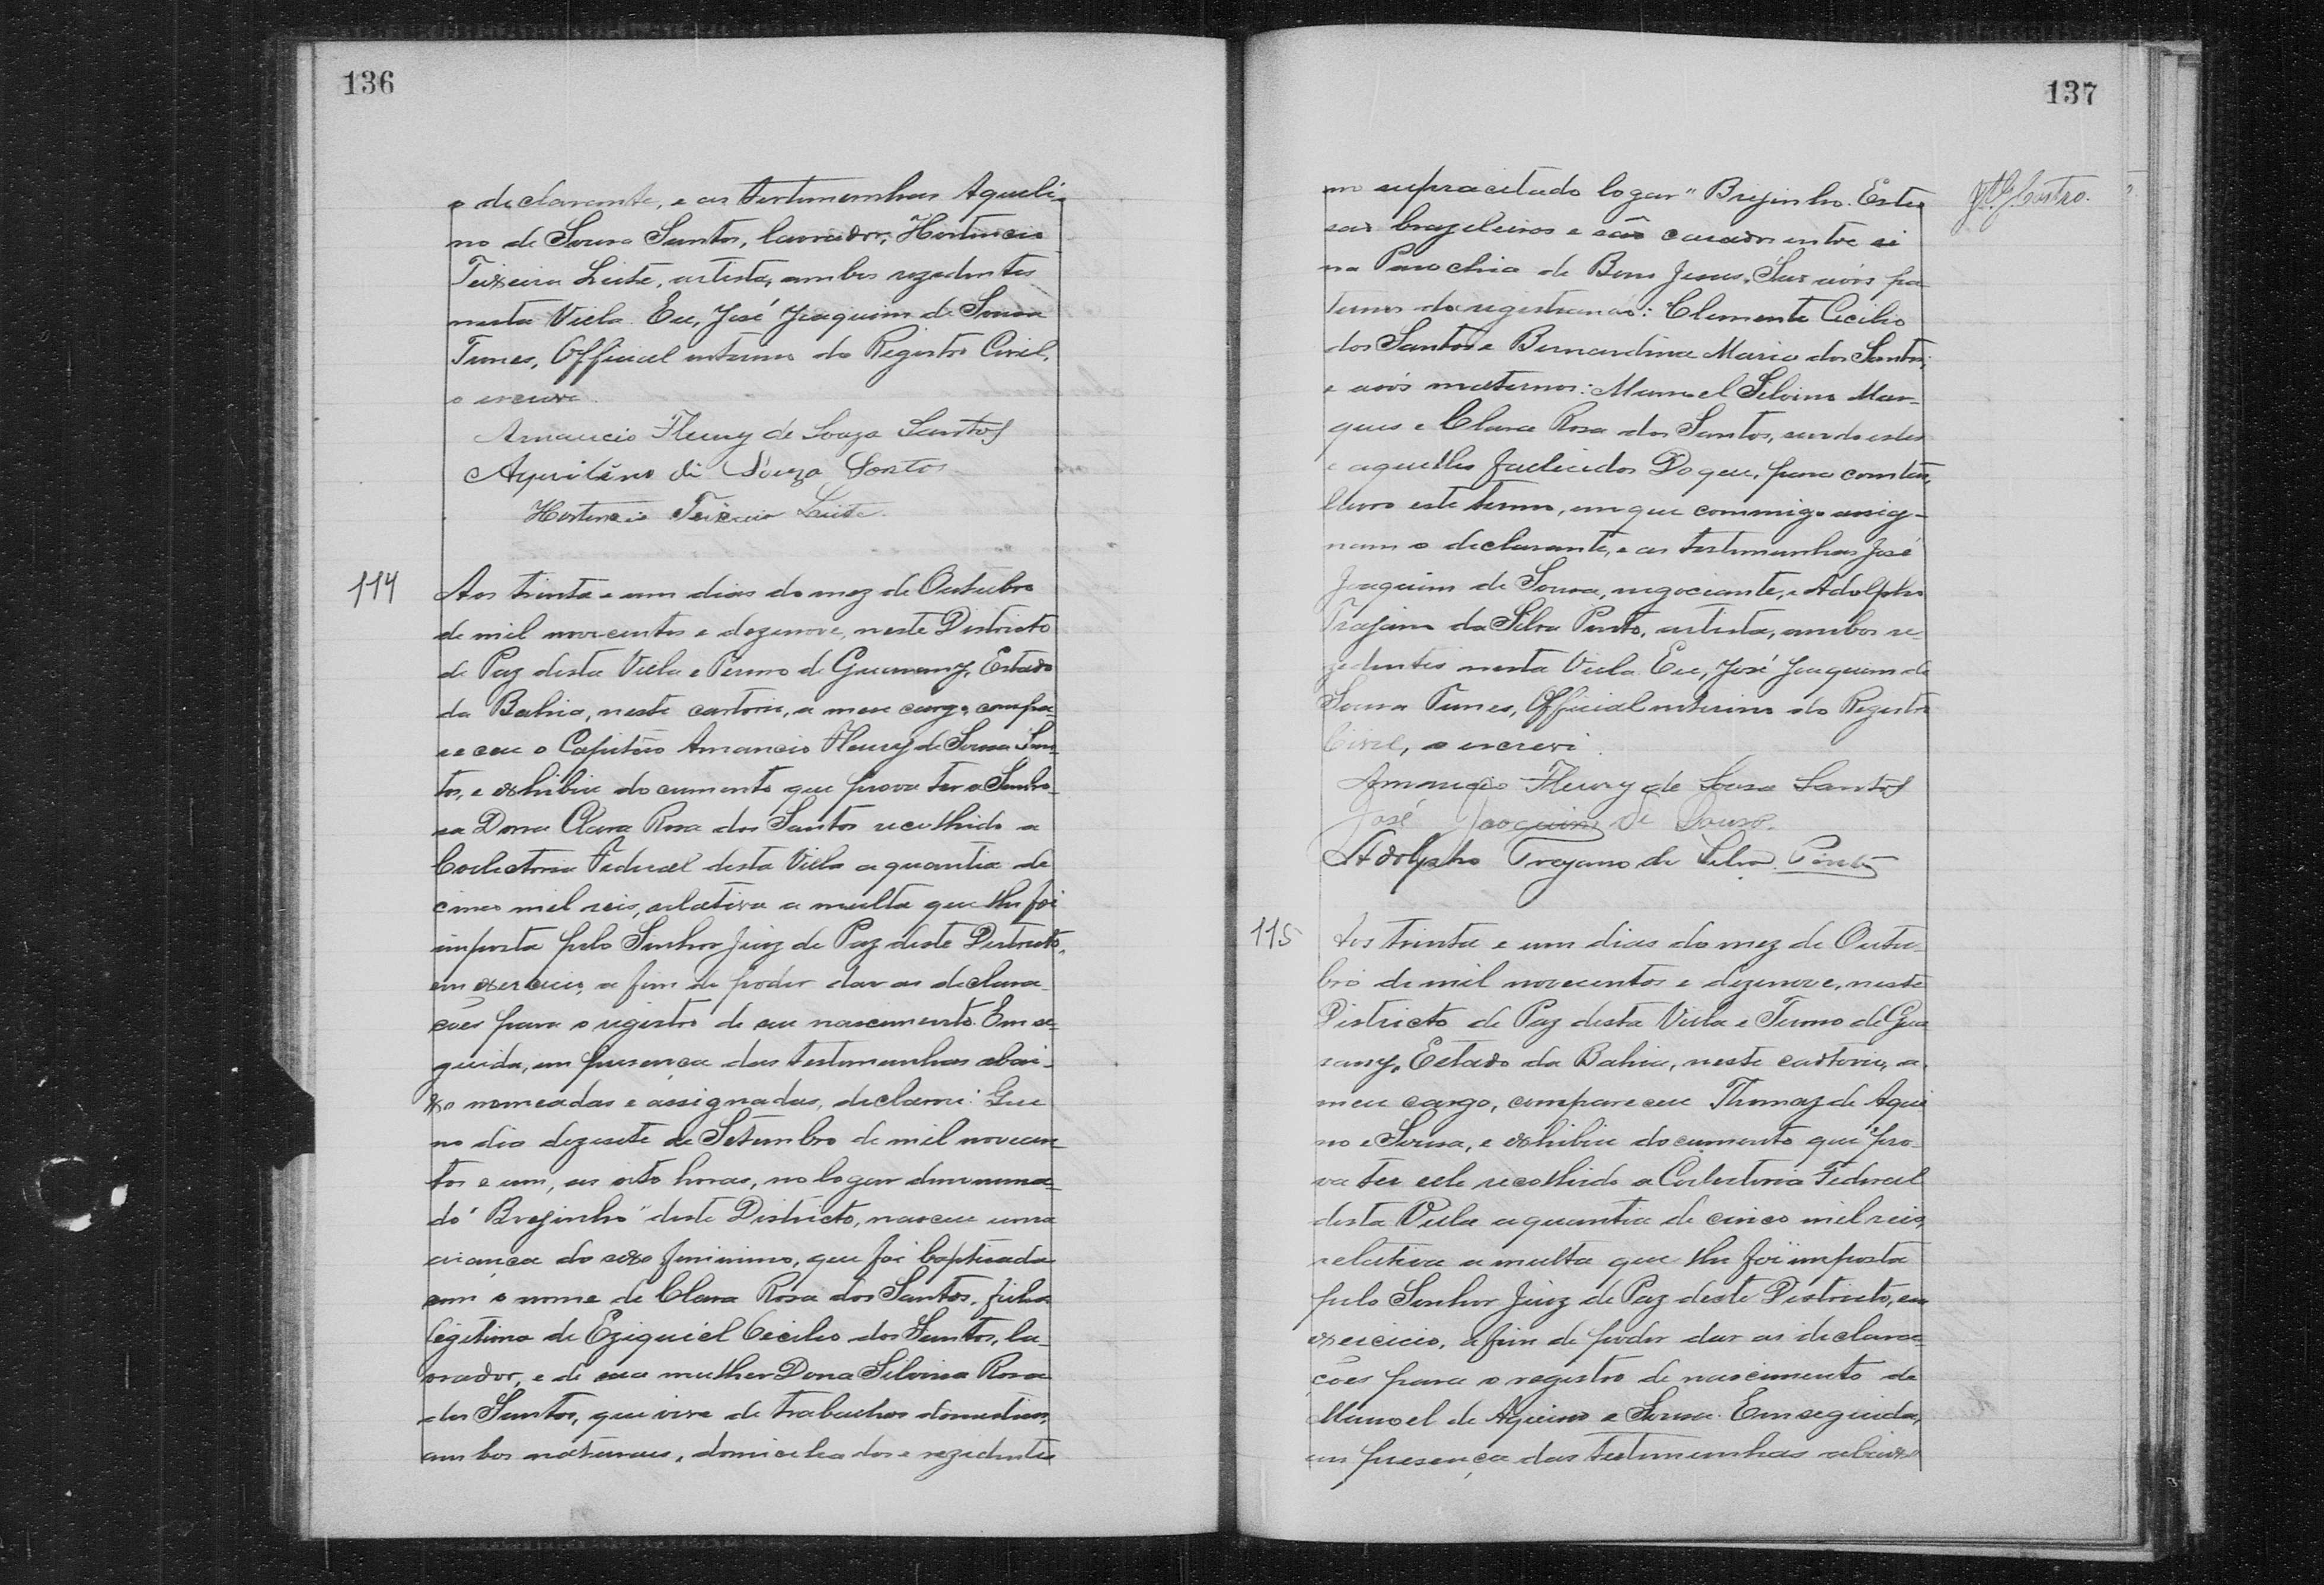 136
o declarante, e as testemunhas Aqueli-
no de Sousa Santos, lavrador, Hortencio
Teixeira Leite, artista, ambos rezedentes
nesta Villa. Eu, José Joaquim de Sousa
Tunes, Official interino do Registro Civil,
o escrevi.
Amancio Fleury de Souza Santos
Aquilino di Souza Santos
Hortencio Teixeira Leite.
114
Aos trinta e um dias do mez de Outubro
de mil novecentos e dezenove, neste Districto
de Paz desta Villa e Termo de Guarany, Estado
da Bahia, neste cartorio, a meu cargo, compa-
receu o Capitão Amancio Fleury de Sousa San-
tos, e exhibiu documento que prova ter a Senho-
ra Dona Clara Rosa dos Santos recolhido a
Collectoria Federal desta Villa a quantia de
cinco mil reis, relativa a multa que lhe foi
imposta pelo Senhor Juiz de Paz deste Districto,
em exercicio, a fim de poder dar as declara-
ções para o registro de seu nascimento. Em se-
guida, em presença das testemunhas abai-
xo nomeadas e assignadas, declarou: Que
no dia dezesete de Setembro de mil novecen-
tos e um, as oito horas, no logar denomina-
do "Brejinho" deste Districto, nasceu uma
criança do sexo feminino, que foi baptisada
com o nome de Clara Rosa dos Santos, filha
legitima de Eziquiel Cecilio dos Santos, la-
vrador, e de sua mulher Dona Silvina Rosa
dos Santos, que vive de trabalhos domesticos,
ambos naturaes, domiciliados e rezedentes
137
no supracitado logar "Brejinho. Estes
são brazileiros e são casados entre si
na Parochia de Bom Jesus. Sus avós pa-
ternos da registranda: Clemente Cecilio
dos Santos e Bernardina Maria dos Santos;
e avós maternos: Manoel Silvino Mar-
ques e Clara Rosa dos Santos, sendo estes
e aquelles fallecidos. Do que, para constar,
lavro este termo, em que commigo assig-
nam o declarante, e as testemunhas José
Joaquim de Sousa, negociante, e Adolpho
Trajano da Silva Pinto, artista, ambos re-
zedentes nesta Villa. Eu, José Joaquim de
Sousa Tunes, Official interino do Registro
Civil, o escrevi.
Amancio Fleury de Sousa Santos
José Joaquim de Souza.
Adolpho Trajano da Silva Pinto
115
Aos trinta e um dias do mez de Outu-
bro de mil novecentos e dezenove, neste
Districto de Paz desta Villa e Termo de Gua-
rany, Estado da Bahia, neste cartorio, a
meu cargo, compareceu Thomaz de Aqui-
no e Sousa, e exhibiu documento que pro-
va ter elle recolhido a Collectoria Federal
desta Villa a quantia de cinco mil reis,
relativa a multa que lhe foi imposta
pelo Senhor Juiz de Paz deste Districto, em
exercicio, a fim de poder dar as declara-
ções para o registro de nascimento de
Manoel de Aquino e Sousa. Em seguida,
em presença das testemunhas abaixo